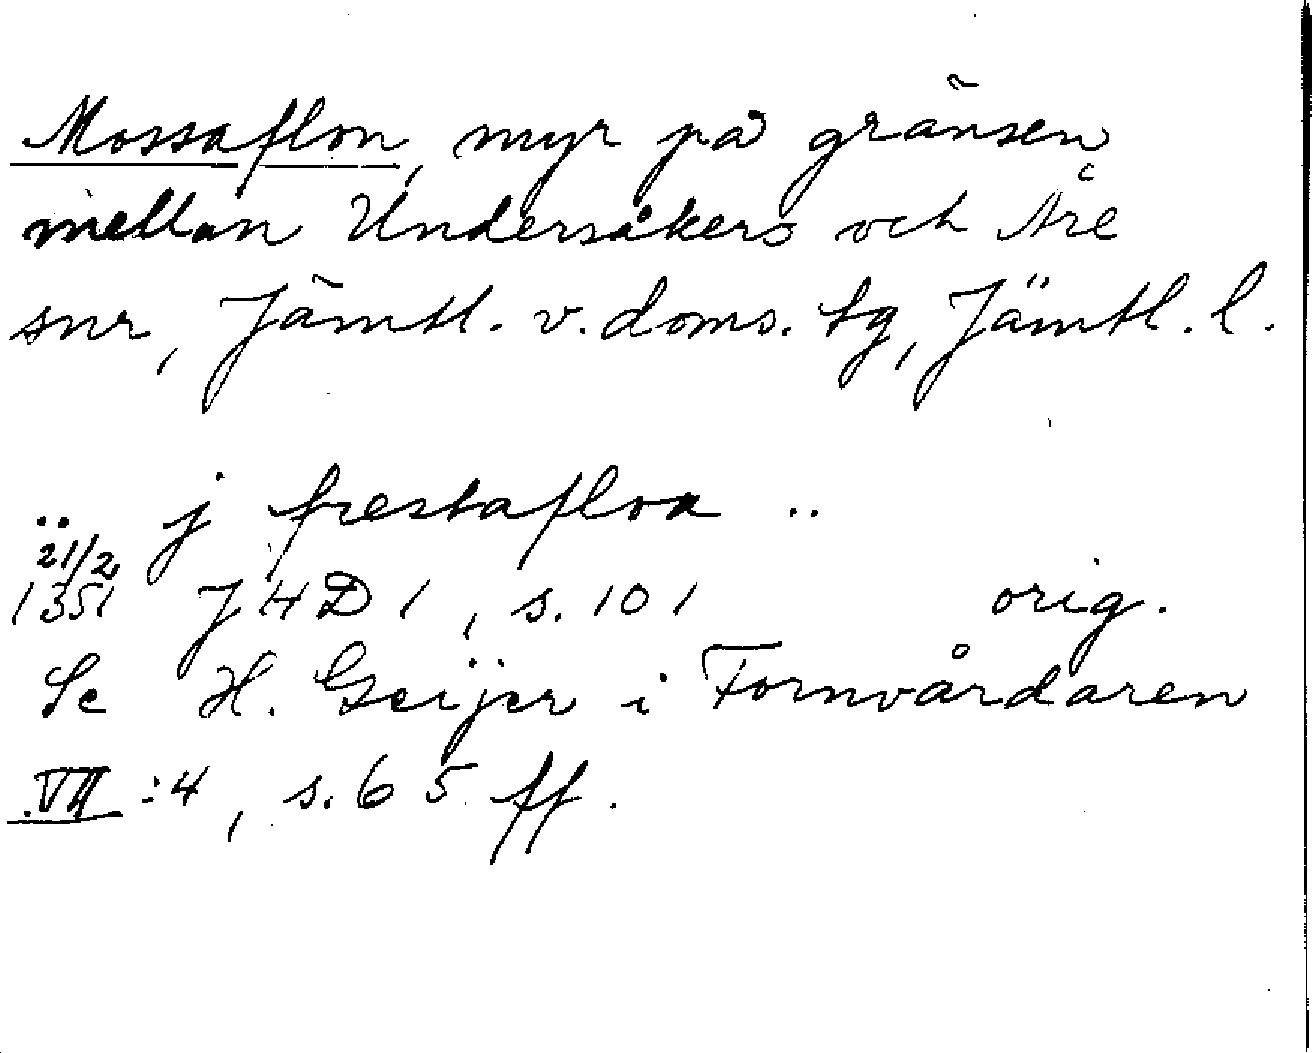 Mossaflon, myr på gränsen
mellan Undersåkers och Åre
snr, Jämtl. v. doms. tg, Jämtl. l.
.. j prestaflon ..
21/2
1351 J H D 1, s. 101 orig.
Se H. Geijer i Fornvårdaren
VII:4, s. 65 ff.